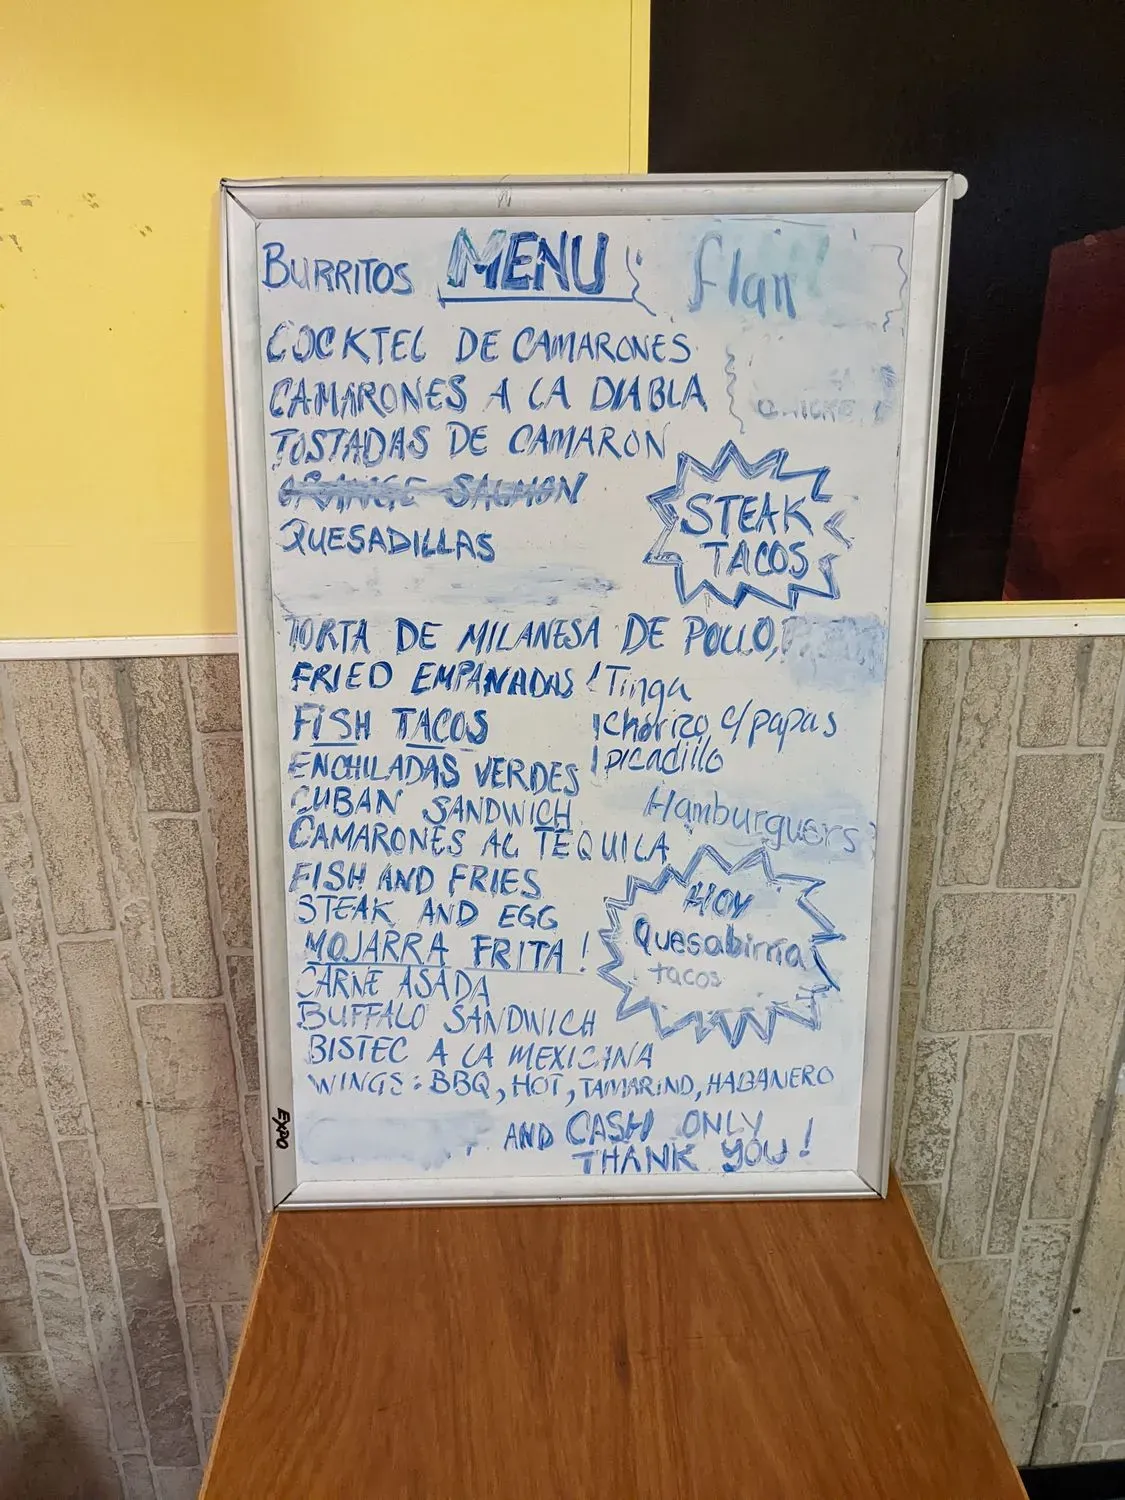 BURRITOS MENU flan
COCKTEL DE CAMARONES
CAMARONES A LA DIABLA
TOSTADAS DE CAMARON
ORANGE SALMON
QUESADILLAS
STEAK
TACOS
TORTA DE MILANESA DE POLLO,
FRIED EMPANADAS ! Tinga
FISH TACOS ! Chorizo c/papas
ENCHILADAS VERDES ! picadillo
CUBAN SANDWICH Hamburguers
CAMARONES AL TEQUILA
FISH AND FRIES
STEAK AND EGG
MOJARRA FRITA !
HOY
Quesabirria
tacos
CARNE ASADA
BUFFALO SANDWICH
BISTEC A LA MEXICANA
WINGS: BBQ, HOT, TAMARIND, HABANERO
AND CASH ONLY
THANK YOU!
EXPO